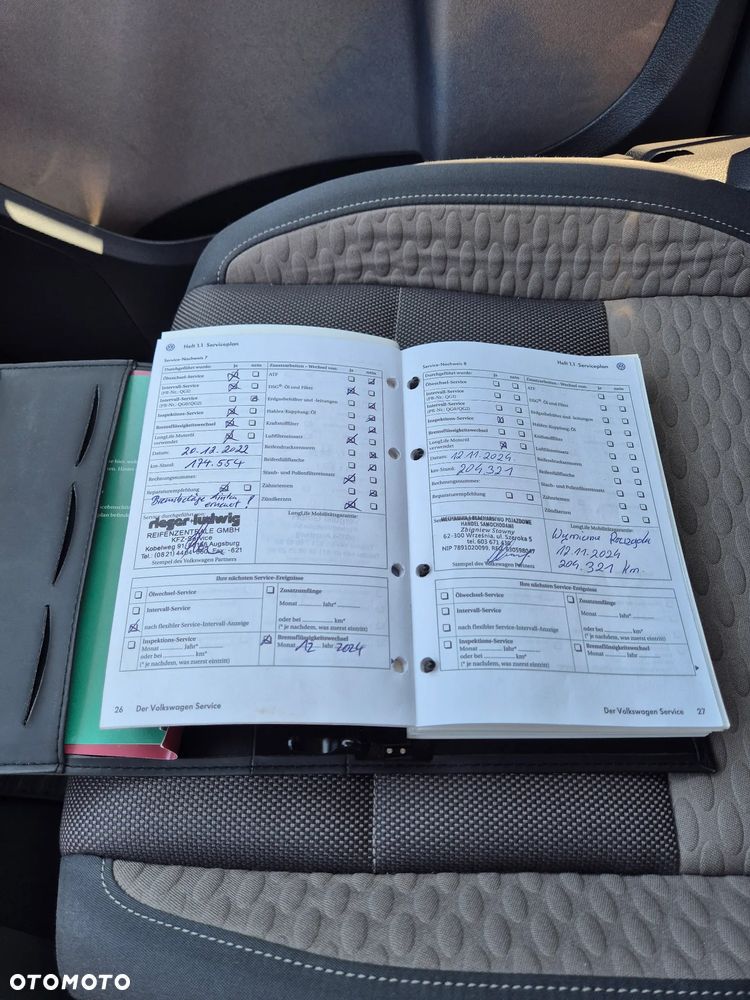 Heft 1.1 Serviceplan
Service-Nachweis 7
Durchgeführt wurde: Ja nein
Ölwechsel-Service
Intervall-Service
(PR-Nr.: QG1)
Intervall-Service
(PR-Nr.: QG0/QG2)
Inspektions-Service
Bremsflüssigkeitswechsel
LongLife Motoröl
verwendet
Datum: 20.12.2022
km-Stand: 174.554
Rechnungsnummer:
Reparaturempfehlung
Bremsbeläge hinten
erneuert!
Service durchgeführt
rieger-ludwig
REIFENZENTRALE GMBH
KFZ-Service
Kobelweg Augsburg
Stempel des Volkswagen Partners
Zusatzarbeiten - Wechsel von: Ja nein
ATF
DSG®-Öl und Filter
Erdgasbehälter und -leitungen
Haldex-Kupplung: Öl
Kraftstofffilter
Luftfiltereinsatz
Reifendrucksensoren
Reifenfüllflasche
Staub- und Pollenfiltereinsatz
Zahnriemen
Zündkerzen
LongLife Mobilitätsgarantie:
Ihre nächsten Service-Ereignisse
Ölwechsel-Service
Intervall-Service
nach flexibler Service-Intervall-Anzeige
Inspektions-Service
Monat Jahr*
oder bei km*
(* je nachdem, was zuerst eintritt)
Zusatzumfänge
Monat Jahr*
oder bei km*
(* je nachdem, was zuerst eintritt)
Bremsflüssigkeitswechsel
Monat 12 Jahr 2024
26 Der Volkswagen Service
Service-Nachweis 8
Heft 1.1 Serviceplan
Durchgeführt wurde: Ja nein
Ölwechsel-Service
Intervall-Service
(PR-Nr.: QG1)
Intervall-Service
(PR-Nr.: QG0/QG2)
Inspektions-Service
Bremsflüssigkeitswechsel
LongLife Motoröl
verwendet
Datum: 12.11.2024.
km-Stand: 204.321
Rechnungsnummer:
Reparaturempfehlung
MECHANIKA I BLACHARSTWO POJAZDOWE
HANDEL SAMOCHODAMI
Zbigniew Stowny
62-300 Września, ul. Szeroka 5
tel. 603 671 436
NIP 7891020099, REG 630598047
Stempel des Volkswagen Partners
Zusatzarbeiten - Wechsel von: Ja nein
ATF
DSG®-Öl und Filter
Erdgasbehälter und -leitungen
Haldex-Kupplung: Öl
Kraftstofffilter
Luftfiltereinsatz
Reifendrucksensoren
Reifenfüllflasche
Staub- und Pollenfiltereinsatz
Zahnriemen
Zündkerzen
LongLife Mobilitätsgarantie:
12.11.2024
204.321 km.
Ihre nächsten Service-Ereignisse
Ölwechsel-Service
Intervall-Service
nach flexibler Service-Intervall-Anzeige
Inspektions-Service
Monat Jahr*
oder bei km*
(* je nachdem, was zuerst eintritt)
Zusatzumfänge
Monat Jahr*
oder bei km*
(* je nachdem, was zuerst eintritt)
Bremsflüssigkeitswechsel
Monat Jahr
Der Volkswagen Service 27
OTOMOTO